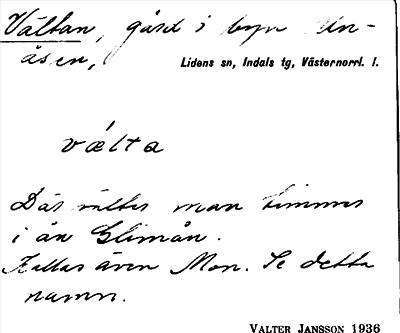 Vältan, gård i byn Un-
åsen,
Lidens sn, Indals tg, Västernorrl. l.
vælta
Där vältes man timmer
i ån Glimån.
Kallas även Mon. Se detta
namn.
VALTER JANSSON 1936